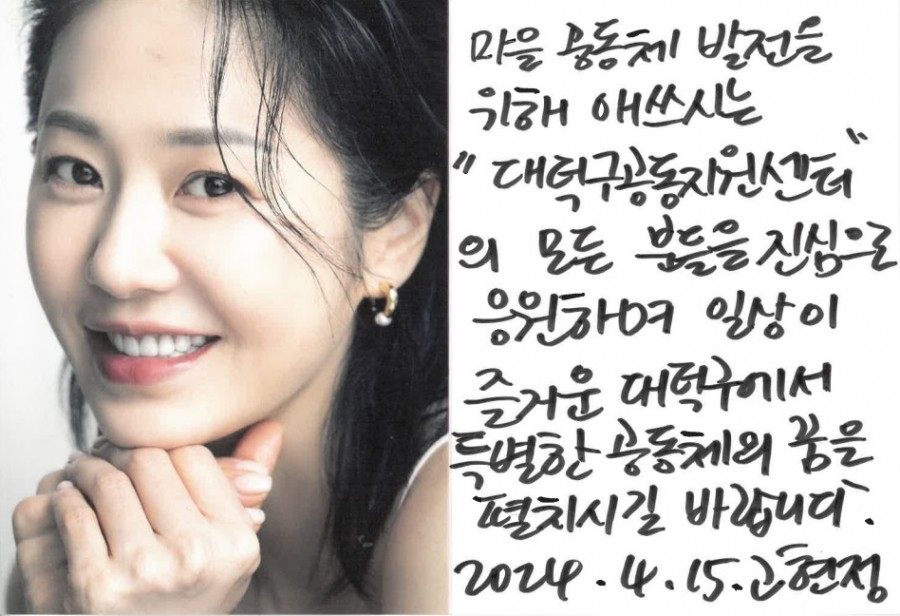 마을 공동체 발전을
위해 애쓰시는
"대덕구공동지원센터"
의 모든 분들을 진심으로
응원하며 일상이
즐거운 대덕구에서
특별한 공동체의 꿈을
펼치시길 바랍니다.
2024.4.15.고현정